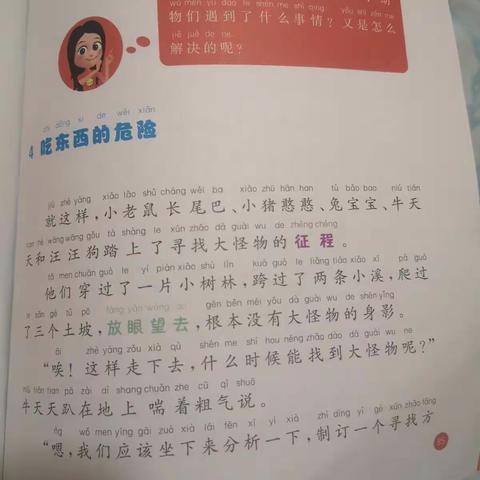 物们遇到了什么事情？又是怎么
jiě jué de ne
解决的呢？
chī dōng xi de wēi xiǎn
4 吃东西的危险
jiù zhè yàng xiǎo lǎo shǔ cháng wěi ba xiǎo zhū hān han tù bǎo bao niú tiān
就这样，小老鼠长尾巴、小猪憨憨、兔宝宝、牛天
tiān hé wāng wāng gǒu tà shàng le xún zhǎo dà guài wu de zhēng chéng
天和汪汪狗踏上了寻找大怪物的征程。
tā men chuān guò le yí piàn xiǎo shù lín kuà guò le liǎng tiáo xiǎo xī pá guò
他们穿过了一片小树林，跨过了两条小溪，爬过
le sān gè tǔ pō fàng yǎn wàng qù gēn běn méi yǒu dà guài wu de shēn yǐng
了三个土坡，放眼望去，根本没有大怪物的身影。
āi zhè yàng zǒu xià qù shén me shí hou néng zhǎo dào dà guài wu ne
“唉！这样走下去，什么时候能找到大怪物呢？”
niú tiān tian pā zài dì shang chuǎn zhe cū qì shuō
牛天天趴在地上喘着粗气说。
ǹg wǒ men yīng gāi zuò xià lái fēn xī yí xià zhì dìng yí gè xún zhǎo fāng
“嗯，我们应该坐下来分析一下，制订一个寻找方